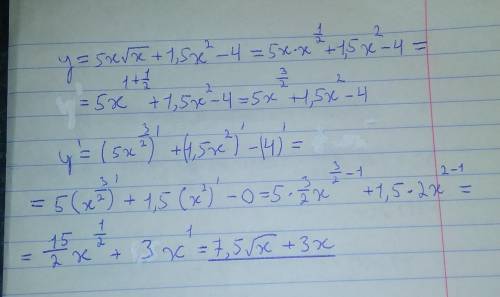 y = 5x√x + 1,5x² - 4 = 5x·x^{1/2} + 1,5x² - 4 =
= 5x^{1+1/2} + 1,5x² - 4 = 5x^{3/2} + 1,5x² - 4
y' = (5x^{3/2})' + (1,5x²)' - (4)' =
= 5(x^{3/2})' + 1,5(x²)' - 0 = 5·3/2 x^{3/2-1} + 1,5·2x^{2-1} =
= 15/2 x^{1/2} + 3x¹ = 7,5√x + 3x